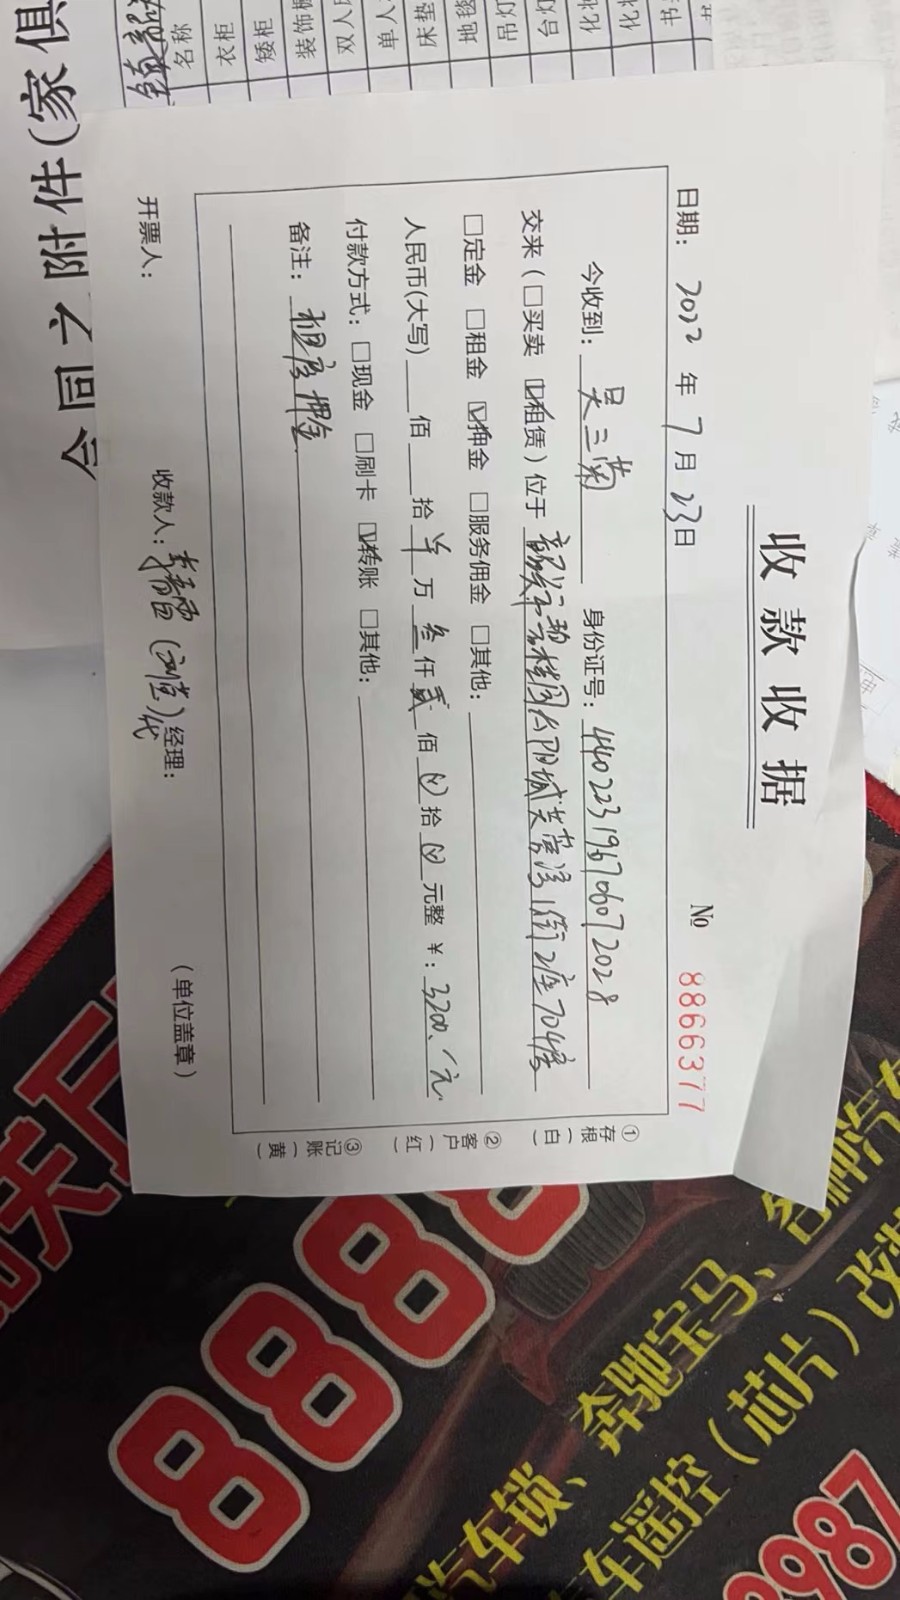 收款收据
日期: 2022 年 7 月 23 日 № 8866377
今收到: 吴三菊 身份证号: 440223196706072028
交来 ( □买卖 ☑租赁 ) 位于 韶关市 碧桂园太阳城芙蓉湾1街2座704房
□定金 □租金 ☑押金 □服务佣金 □其他:
人民币(大写) 佰 拾 万 叁仟贰佰 拾 元整 ¥: 3200.元
付款方式: □现金 □刷卡 ☑转账 □其他:
备注: 租房押金
开票人: 收款人: 代 经理: (单位盖章)
①存根(白)
②客户(红)
③记账(黄)
合同之附件(家俱
名称
衣柜
矮柜
装饰
双人
单人
床垫
地毯
吊灯
台灯
化
化
书
888
汽车锁、奔驰宝马、各种汽车
车遥控(芯片)改
8987